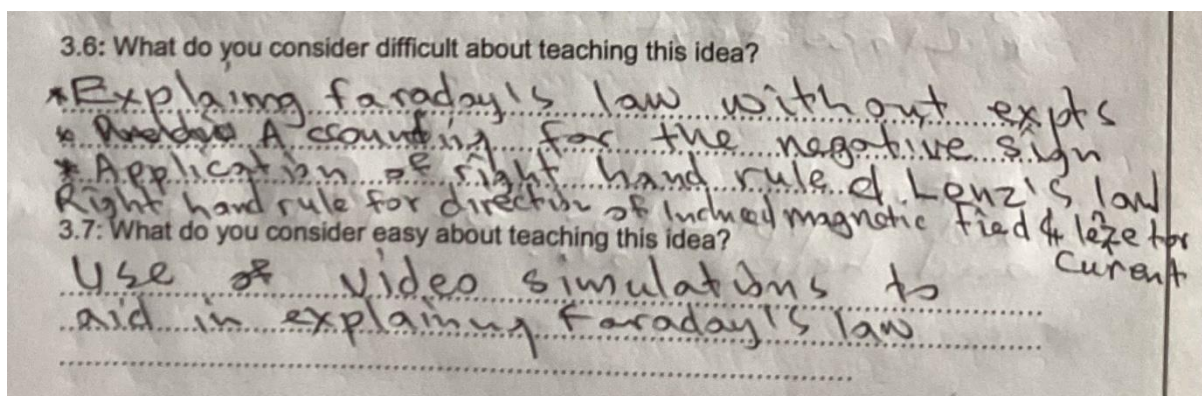 3.6: What do you consider difficult about teaching this idea?
*Explaing faraday's law without expts
* Accounting for the negative sign
* Application of right hand rule & Lenz's law
Right hand rule for direction of Induced magnetic fied & for
Curent
3.7: What do you consider easy about teaching this idea?
Use of video simulations to
aid in explaining Faraday's law